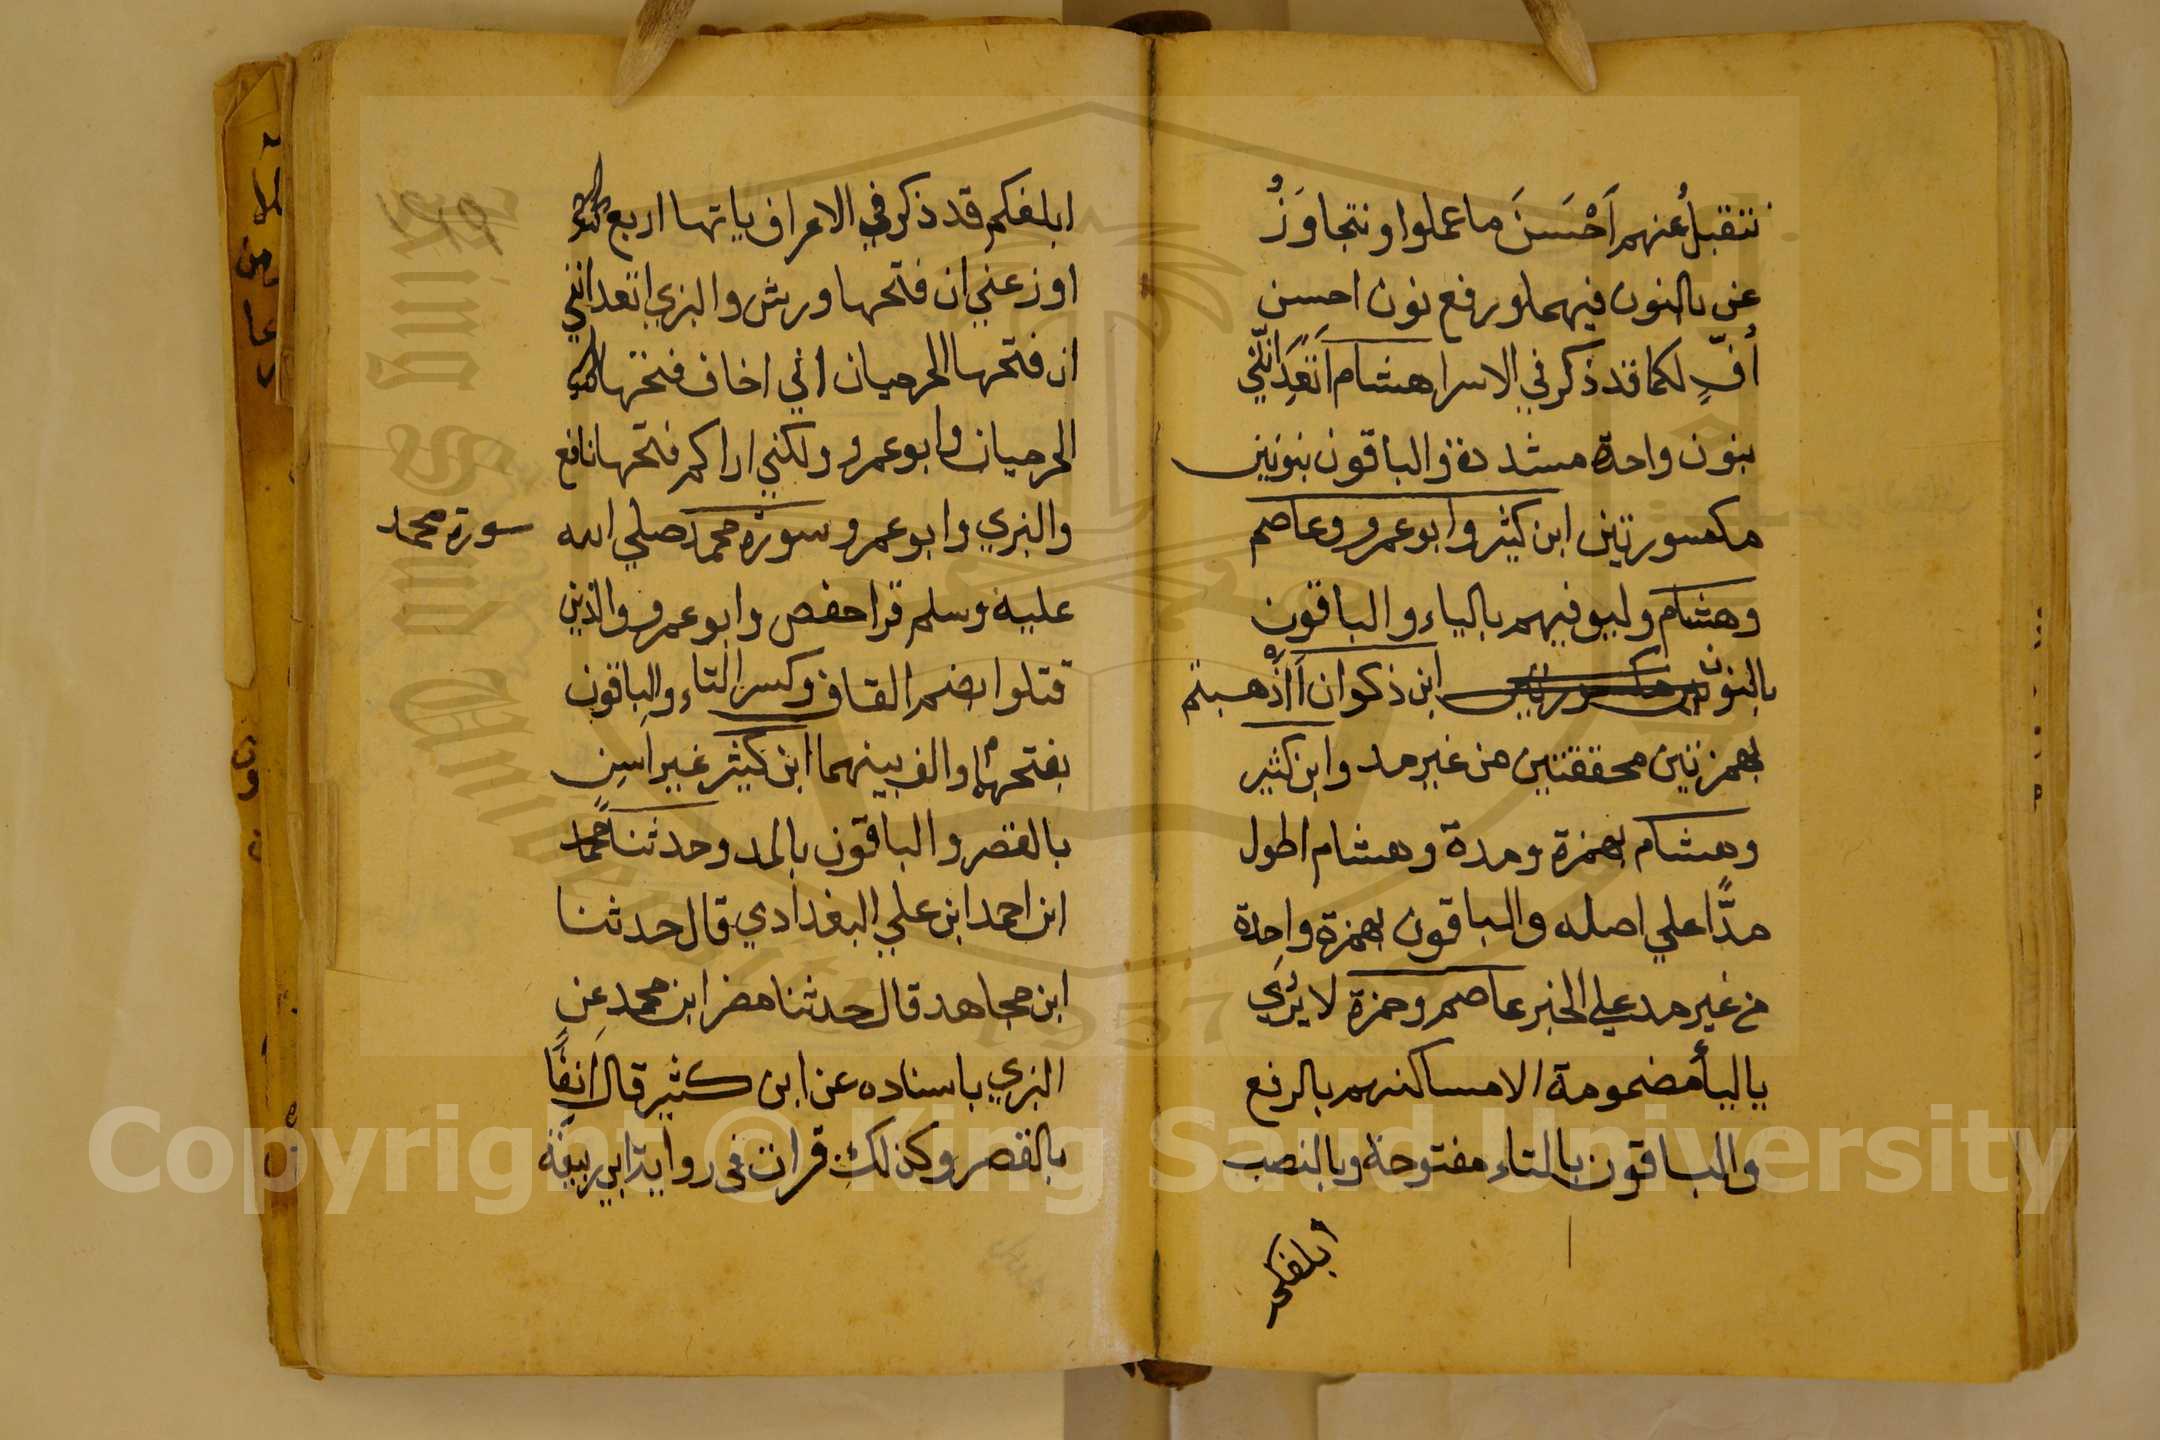 نتقبل عنهم اَحْسَنَ ما عملوا ونتجاوَزُ
عن بالنون فيهما ورفع نون احسن
أفٍّ لكما قد ذكر في الاسرا هشام اَتعِدَانّي
بنون واحدة مشددة والباقون بنونين
مكسورتين ابن كثير وابو عمرو وعاصم
وهشام وليوفيهم بالياء والباقون
بالنون ابن ذكوان أَاَذْهبتم
بهمزتين محققتين من غير مد وابن كثير
وهشام بهمزة ومدة وهشام اطول
مدًّا علي اصله والباقون بهمزة واحدة
من غير مد علي الخبر عاصم وحمزة لا يُرَي
باليأ مضمومة الا مساكنهم بالرفع
والباقون بالتاء مفتوحة وبالنصب
ابلغكم
ابلغكم قد ذكر في الاعراف ياتها اربع
اوزعني ان فتحها ورش والبزي اتعدانني
ان فتحها الحرميان اني اخاف فتحها
الحرميان وابو عمرو ولكني اراكم فتحها نافع
والبزي وابو عمرو سورة محمد صلي الله
سورة محمد
عليه وسلم قرا حفص وابو عمرو والذين
قتلوا بضم القاف وكسر التاء والباقون
بفتحهما والف بينهما ابن كثير غير اسِن
بالقصر والباقون بالمد وحدثنا محمد
ابن احمد ابن علي البغدادي قال حدثنا
ابن مجاهد قال حدثنا مضر ابن محمد عن
البزي باسناده عن ابن كثير قال انفًا
بالقصر وكذلك قرات في رواية ابي ربيعة
Copyright © King Saud University
1957